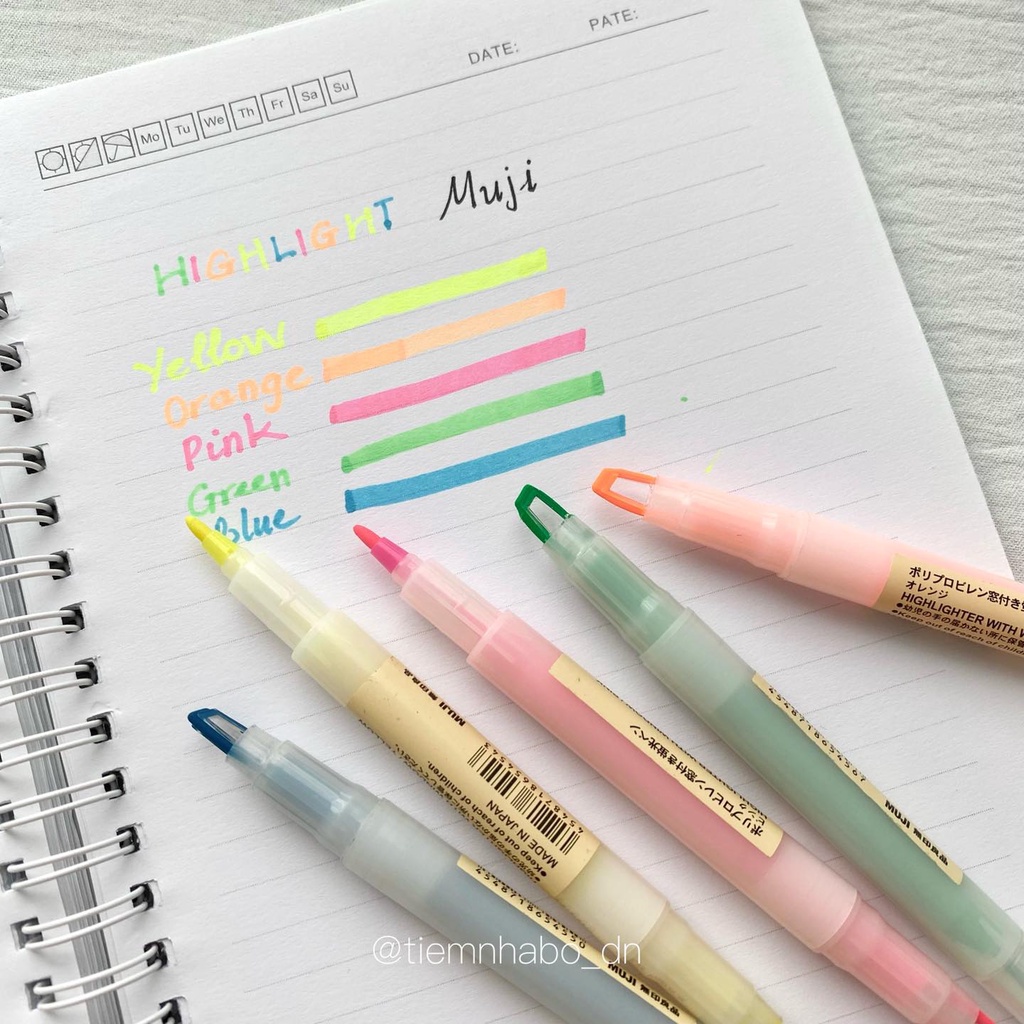 DATE: PATE:
Mo Tu We Th Fr Sa Su
HIGHLIGHT Muji
Yellow
Orange
Pink
Green
blue
ポリプロピレン窓付き
オレンジ
HIGHLIGHTER WITH
●幼児の手の届かない所に保管
●Keep out of reach of children
MUJI 無印良品
MUJI 無印良品
ポリプロピレン窓付き蛍光ペン
ピンク
MADE IN JAPAN
●Keep out of reach of children.
MUJI 無印良品
@tiemnhabo_dn